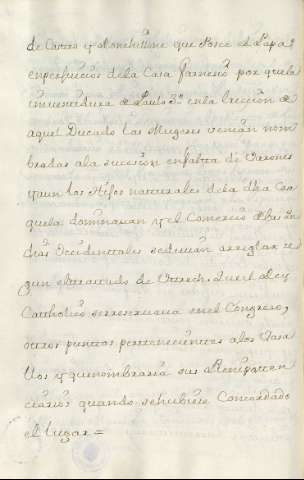 de Castro y Ronchillone que Posee el Papa en
en perjuicio de la Casa Farnesio por que la
imbentidura de Paulo 3º en la ereccion de
aquel Ducado las Mugeres venian nom
bradas a la sucesion en falta de Varones
y aun los Hijos naturales de la dha Casa
que la dominavan y el Comercio de las In
dias Occidentales se devian arreglar se
gun el tratado de Utrech. Que el Rey
Catholico se reservava en el Congreso,
otros puntos pertenecientes a los Vasa
llos y que nombraria sus Plenipoten
ciarios quando se hubiese Concordado
el lugar =